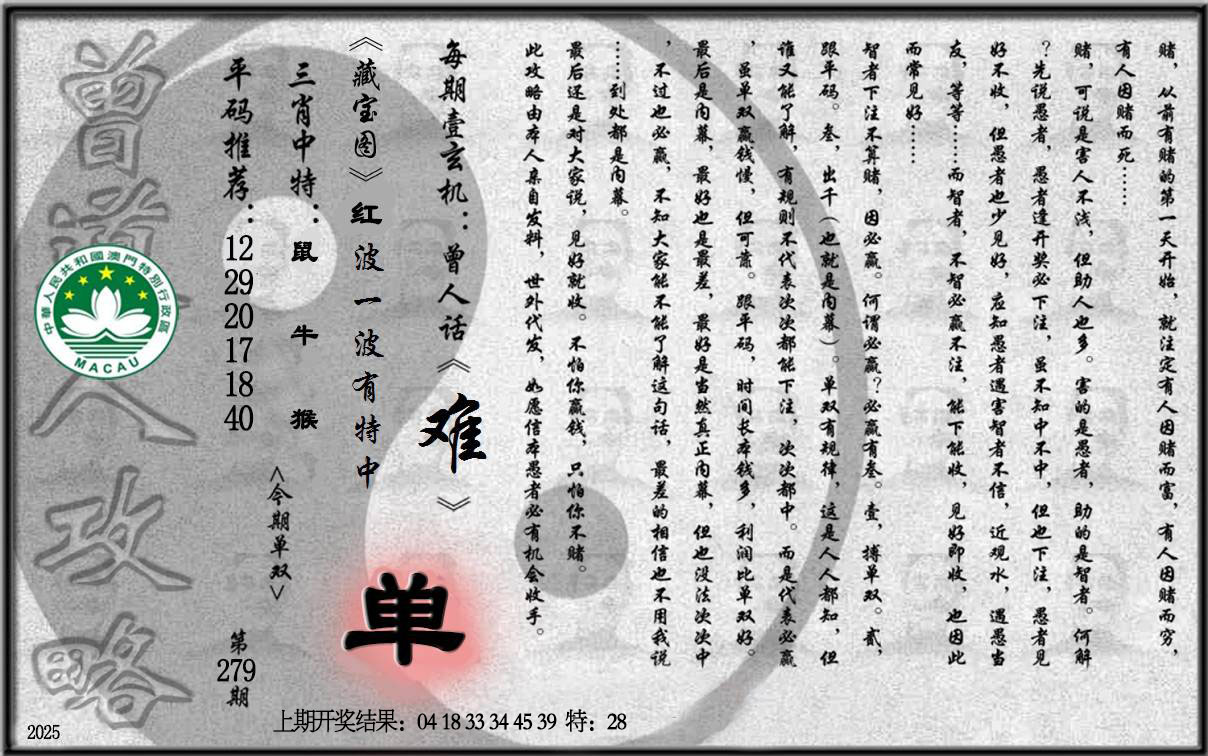 赌，从前有赌的第一天开始，就注定有人因赌而富，有人因赌而穷，
有人因赌而死……
赌，可说是害人不浅，但助人也多。害的是愚者，助的是智者。何解
？先说愚者，愚者逢开奖必下注，虽不知中不中，但也下注，愚者见
好不收，但愚者也少见好，应知愚者遇害智者不信，近观水，遇愚当
友，等等……而智者，不智必赢不注，能下能收，见好即收，也因此
而常见好……
智者下注不算赌，因必赢。何谓必赢？必赢有叁。壹，搏单双。贰，
跟平码。叁，出千（也就是内幕）。单双有规律，这是人人都知，但
谁又能了解，有规则不代表次次都能下注，次次都中。而是代表必赢
，虽单双赢钱慢，但可靠。跟平码，时间长本钱多，利润比单双好。
最后是内幕，最好也是最差，最好是当然真正内幕，但也没法次次中
，不过也必赢，不知大家能不能了解这句话，最差的相信也不用我说
……到处都是内幕。
最后还是对大家说，见好就收。不怕你赢钱，只怕你不赌。
此攻略由本人亲自发料，世外代发，如愿信本愚者必有机会收手。
每期壹玄机：曾人话《难》
《藏宝图》红波一波有特中
三肖中特：鼠 牛 猴
平码推荐：12 29 20 17 18 40
<今期单双>
单
第279期
曾道人攻略
中華人民共和國澳門特別行政區
MACAU
上期开奖结果：04 18 33 34 45 39 特：28
2025